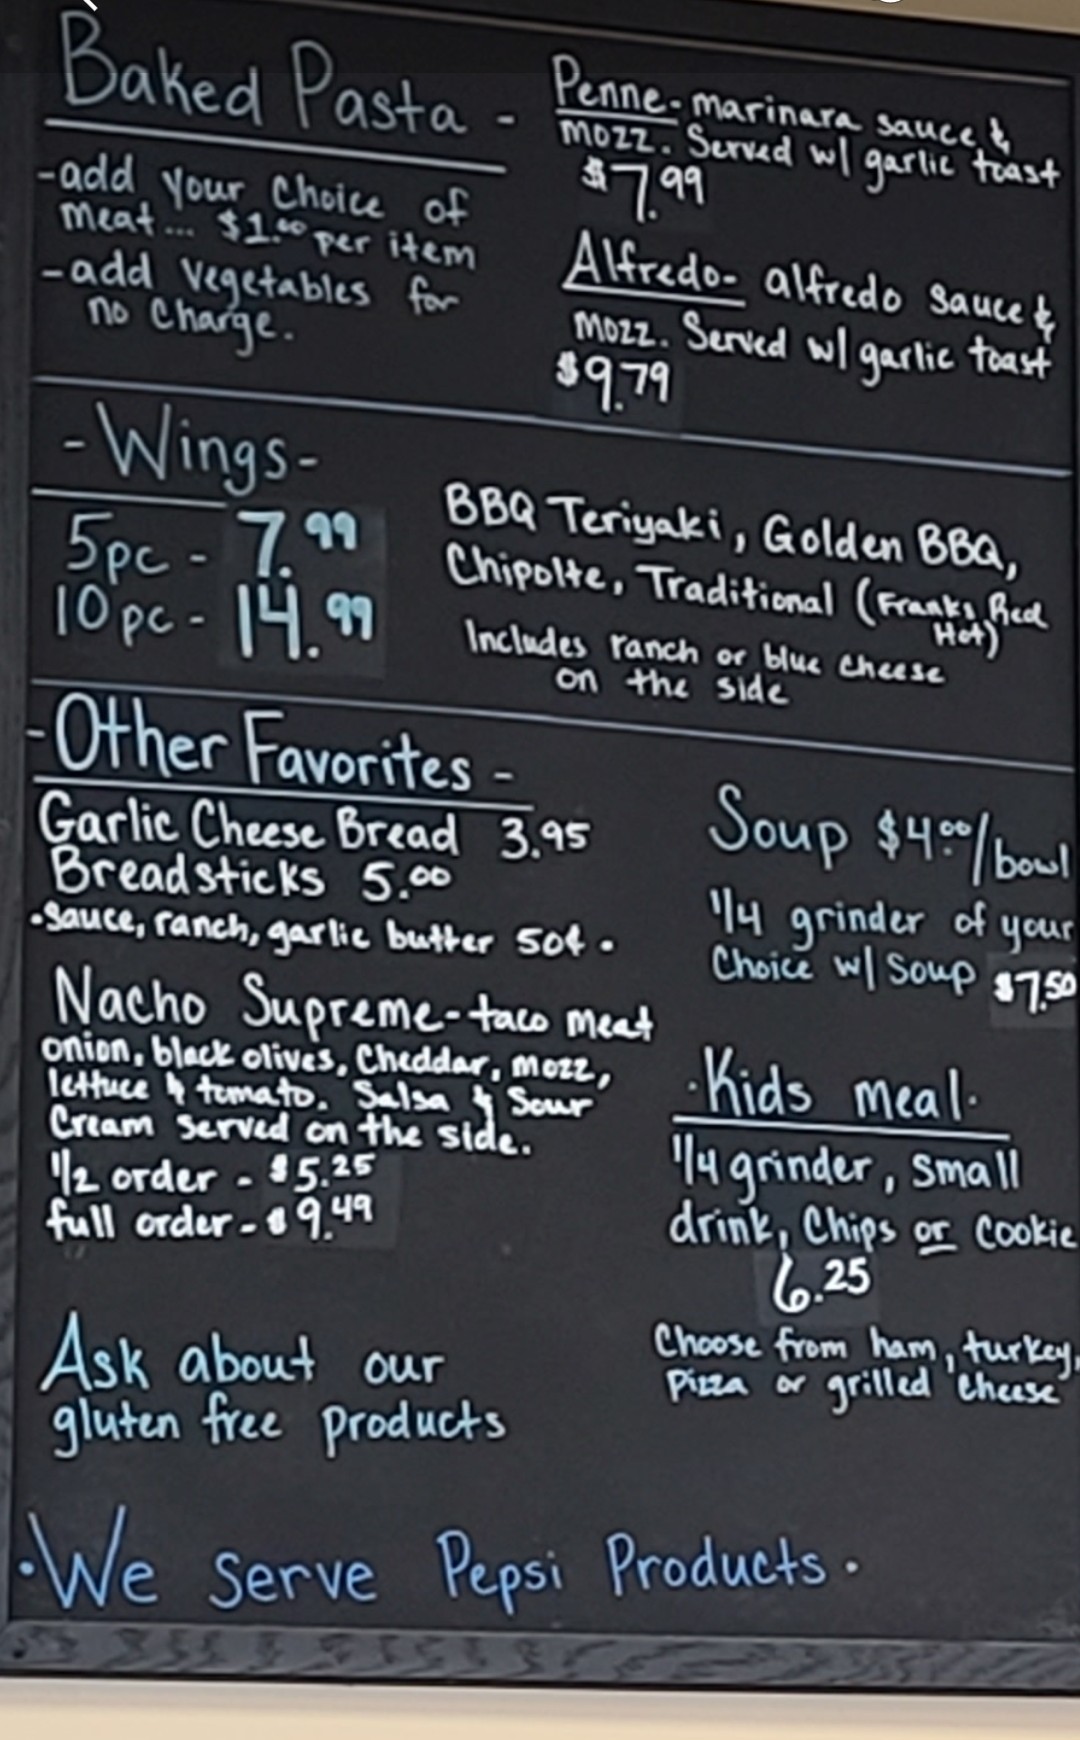 Baked Pasta -
-add your choice of
meat... $1.00 per item
-add vegetables for
no charge.
Penne- marinara sauce &
mozz. Served w/ garlic toast
$7.99
Alfredo- alfredo sauce &
mozz. Served w/ garlic toast
$9.79
-Wings-
5pc - 7.99
10pc - 14.99
BBQ Teriyaki, Golden BBQ,
Chipolte, Traditional (Franks Red
Hot)
Includes ranch or blue cheese
on the side
-Other Favorites -
Garlic Cheese Bread 3.95
Breadsticks 5.00
•sauce, ranch, garlic butter 50¢ •
Nacho Supreme-taco meat
onion, black olives, Cheddar, mozz,
lettuce & tomato. Salsa & Sour
Cream served on the side.
1/2 order - $5.25
full order - $9.49
Soup $4.00/bowl
1/4 grinder of your
Choice w/ Soup $7.50
•Kids meal•
1/4 grinder, small
drink, Chips or cookie
6.25
Choose from ham, turkey,
pizza or grilled cheese
Ask about our
gluten free products
•We serve Pepsi Products•